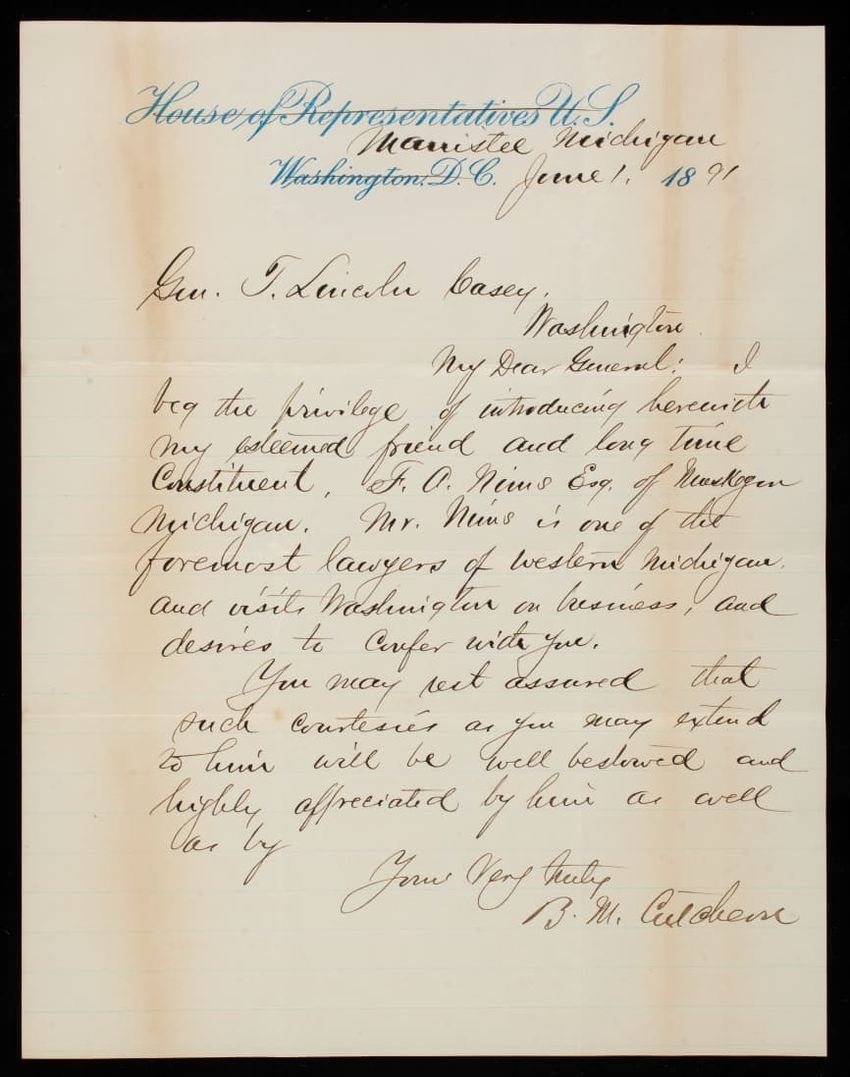 House of Representatives U.S.
Manistee Michigan
Washington, D.C. June 1. 1891
Gen. T. Lincoln Casey.
Washington.
My Dear General: I
beg the privilege of introducing herewith
my esteemed friend and long time
Constituent, F. A. Nims Esq. of Muskegon
Michigan. Mr. Nims is one of the
foremost lawyers of western Michigan.
and visits Washington on business, and
desires to confer with you.
You may rest assured that
such courtesies as you may extend
to him will be well bestowed and
highly appreciated by him as well
as by
Yours Very truly
B. M. Cutcheon